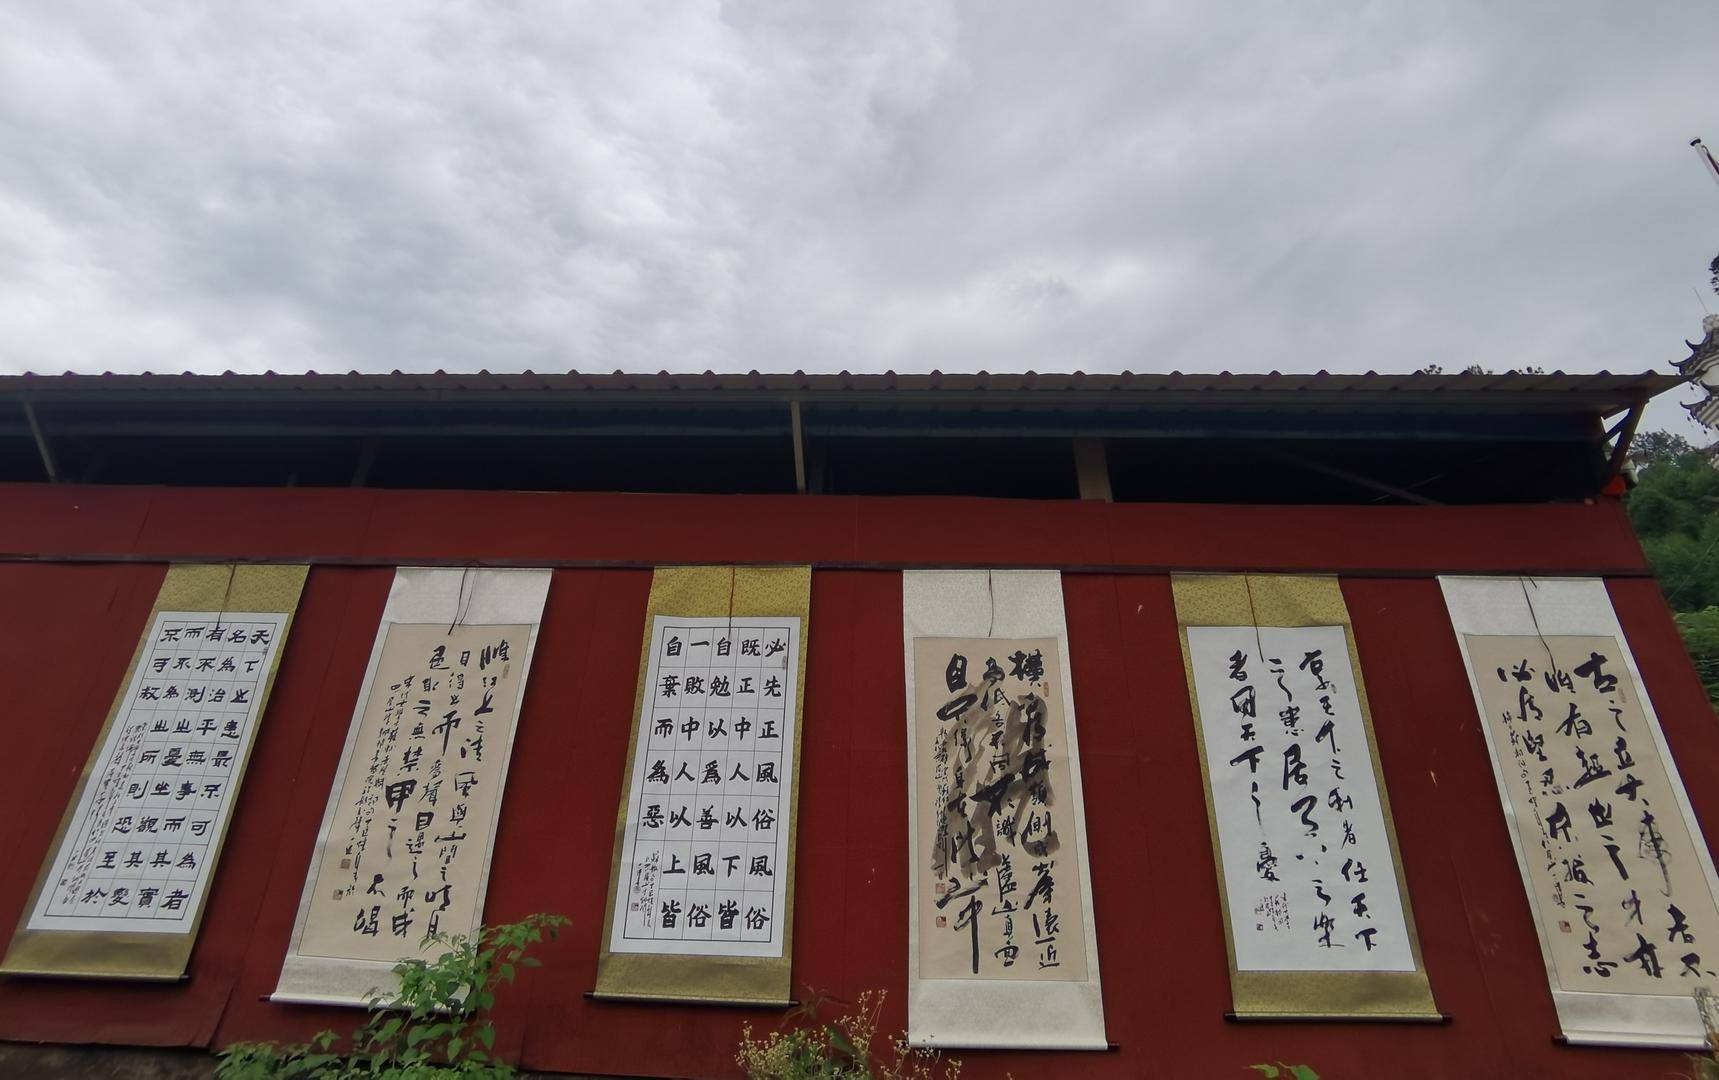 天下之患最不可為者
名為治平無事而其實
有不測之憂坐觀其變
而不為之所則恐至於
不可救
惟江上之清風與山間之明月
耳得之而為聲目遇之而成
色取之無禁用之不竭
必先正風俗風俗
既正中人以下皆
自勉以爲善風俗
一敗中人以上皆
自棄而為惡
橫看成嶺側成峯遠近
高低各不同不識廬山真面
目只緣身在此山中
享天下之利者任天下
之患居天下之樂
者同天下之憂
古之立大事者不
惟有超世之才亦
必有堅忍不拔之志